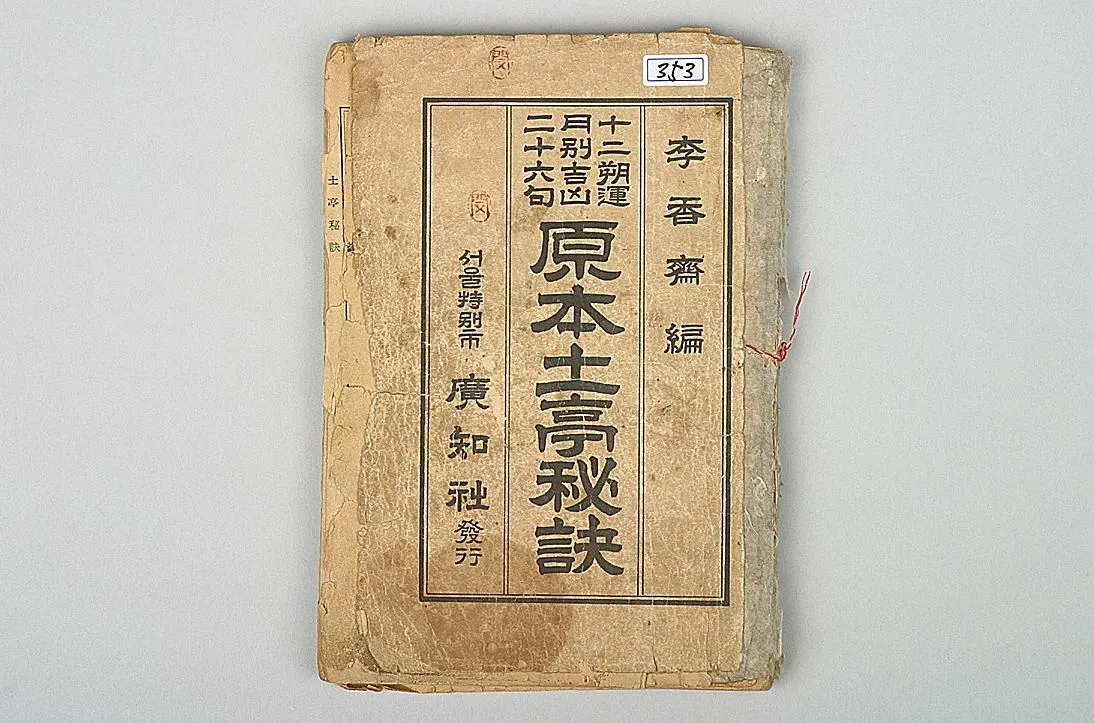 353
李香齋編
十二朔運
月别吉凶
二十六句
原本土亭秘訣
서울特别市
廣知社
發行
土亭秘訣